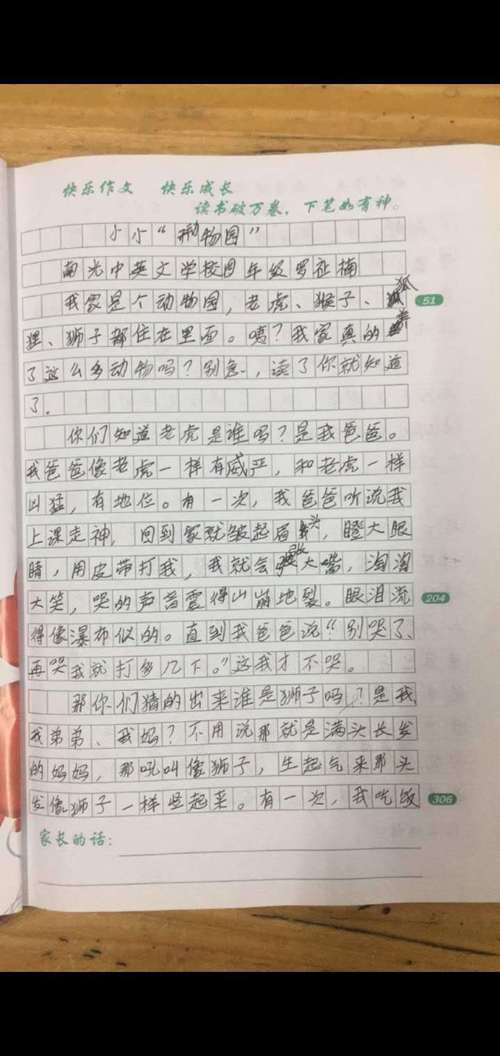 快乐作文 快乐成长
读书破万卷，下笔如有神。
小小“动物园”
南光中英文学校四年级罗祉楠
我家是个动物园，老虎、猴子、狐
狸、狮子都住在里面。咦？我家真的养
了这么多动物吗？别急，读了你就知道
了。
你们知道老虎是谁吗？是我爸爸。
我爸爸像老虎一样有威严，和老虎一样
凶猛，有地位。有一次，我爸爸听说我
上课走神，回到家就皱起眉头，瞪大眼
睛，用皮带打我，我就会张大嘴，淘淘
大笑，哭的声音震得山崩地裂。眼泪流
得像瀑布似的。直到我爸爸说“别哭了、
再哭我就打多几下。”这我才不哭。
那你们猜的出来谁是狮子吗？是我
我弟弟、我妈？不用说那就是满头长发
的妈妈，那吼叫像狮子，生起气来那头
发像狮子一样竖起来。有一次，我吃饭
51
204
306
家长的话：